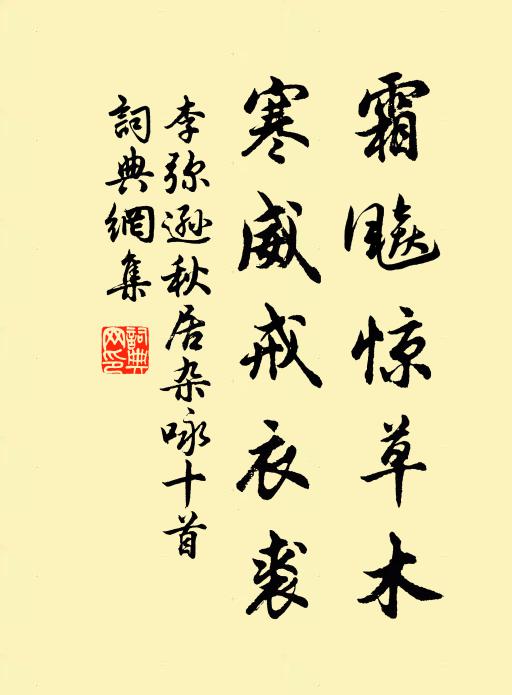 霜飚惊草木
寒威戒衣裘
李弥逊秋居杂咏十首
詞典網集
詞典网印